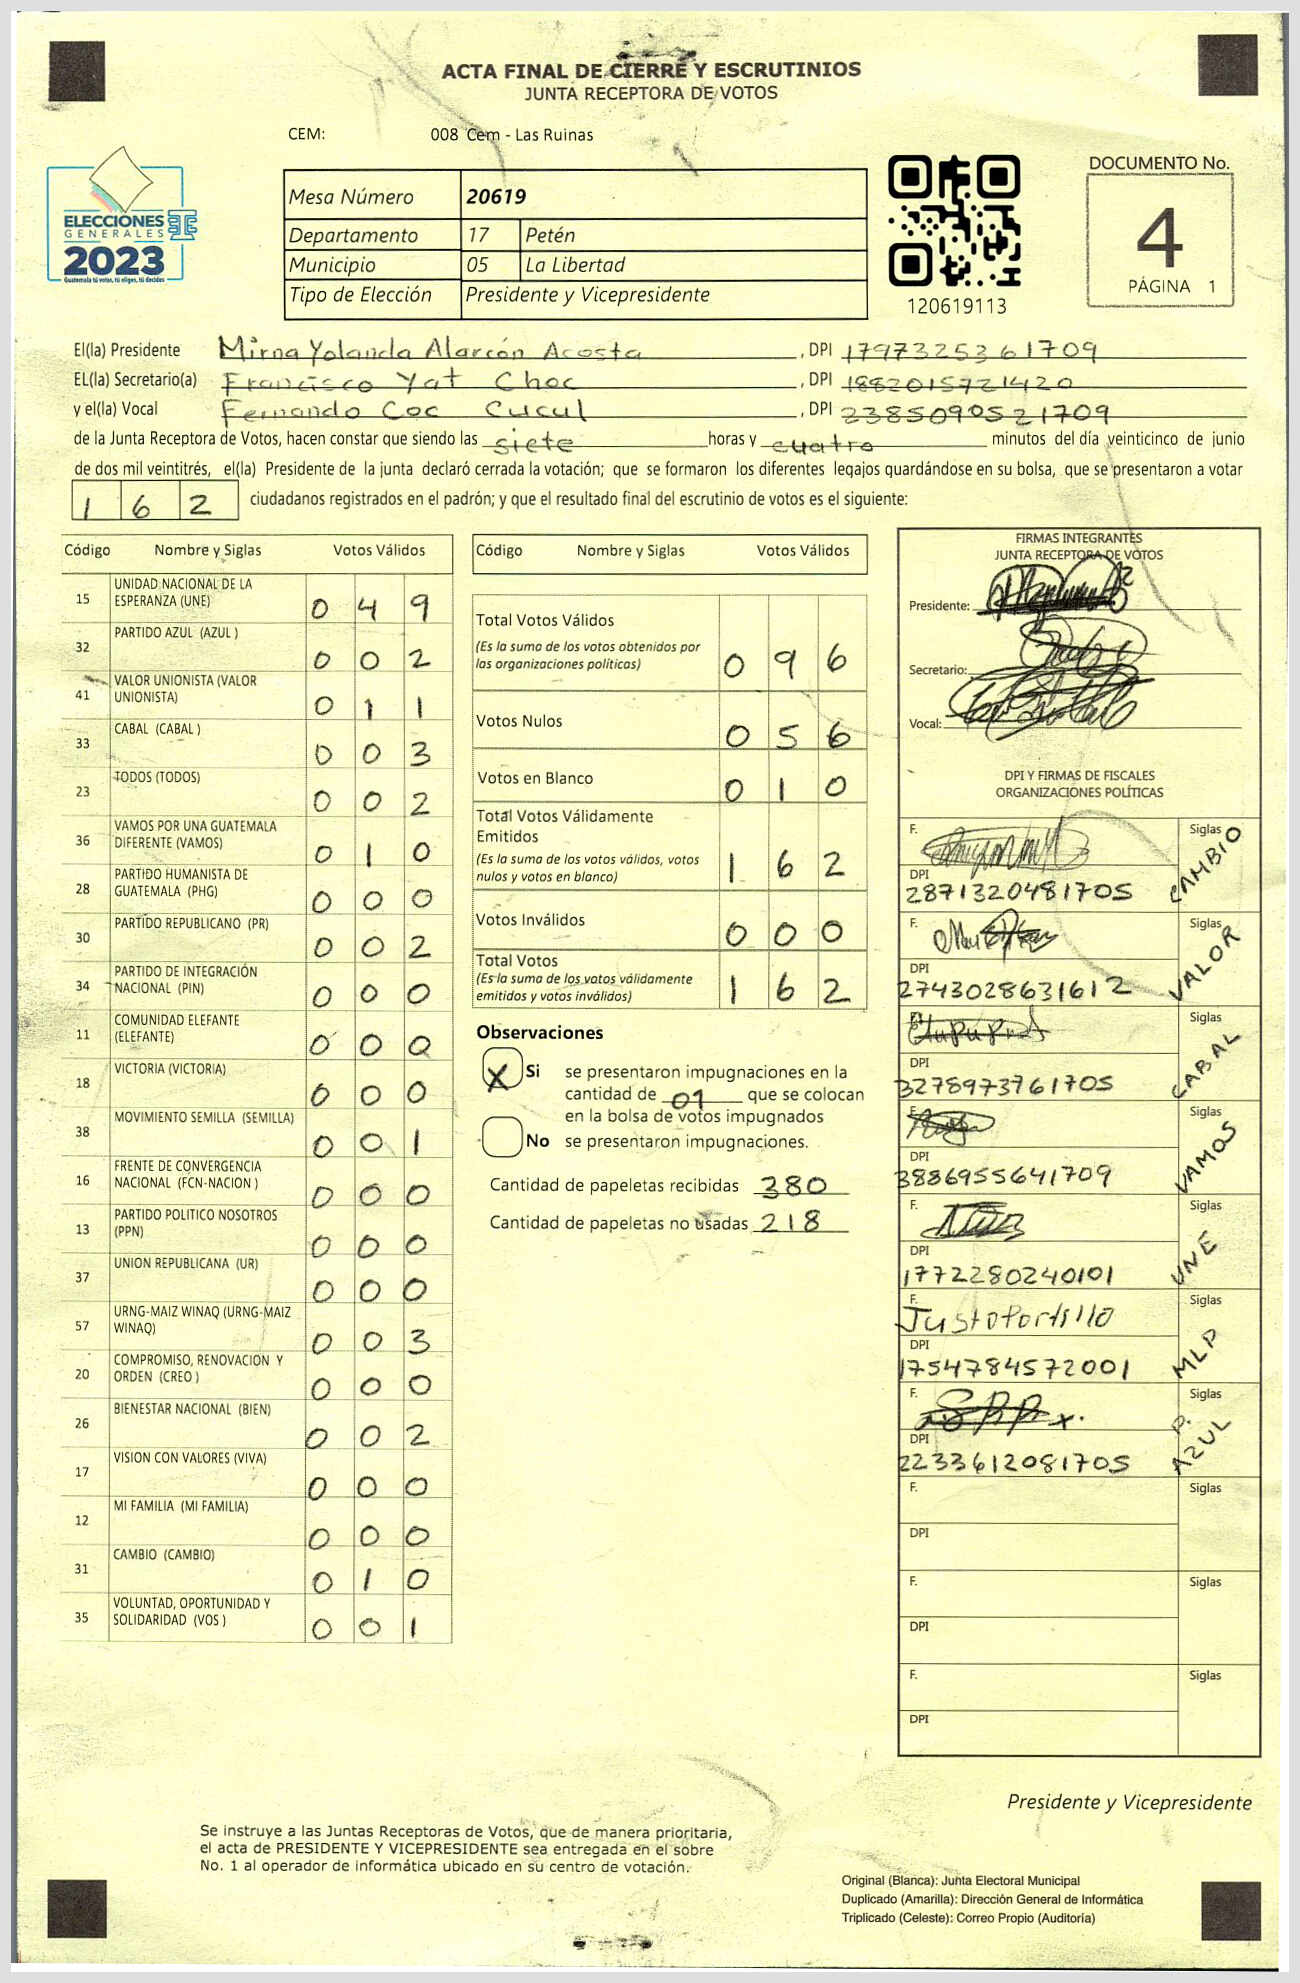 ACTA FINAL DE CIERRE Y ESCRUTINIOS
JUNTA RECEPTORA DE VOTOS
CEM: 008 Cem - Las Ruinas
ELECCIONES
GENERALES
2023
Guatemala tú votas, tú eliges, tú decides
Mesa Número 20619
Departamento 17 Petén
Municipio 05 La Libertad
Tipo de Elección Presidente y Vicepresidente
120619113
DOCUMENTO No.
4
PÁGINA 1
El(la) Presidente Mirna Yolanda Alarcón Acosta , DPI 1797325361709
EL(la) Secretario(a) Francisco Yat Choc , DPI 1882015721420
y el(la) Vocal Fernando Coc Cucul , DPI 2385090521709
de la Junta Receptora de Votos, hacen constar que siendo las siete horas y cuatro minutos del día veinticinco de junio
de dos mil veintitrés, el(la) Presidente de la junta declaró cerrada la votación; que se formaron los diferentes legajos quardándose en su bolsa, que se presentaron a votar
162 ciudadanos registrados en el padrón; y que el resultado final del escrutinio de votos es el siguiente:
Código Nombre y Siglas Votos Válidos
15 UNIDAD NACIONAL DE LA
ESPERANZA (UNE) 0 4 9
32 PARTIDO AZUL (AZUL ) 0 0 2
41 VALOR UNIONISTA (VALOR
UNIONISTA) 0 1 1
33 CABAL (CABAL ) 0 0 3
23 TODOS (TODOS) 0 0 2
36 VAMOS POR UNA GUATEMALA
DIFERENTE (VAMOS) 0 1 0
28 PARTIDO HUMANISTA DE
GUATEMALA (PHG) 0 0 0
30 PARTIDO REPUBLICANO (PR) 0 0 2
34 PARTIDO DE INTEGRACIÓN
NACIONAL (PIN) 0 0 0
11 COMUNIDAD ELEFANTE
(ELEFANTE) 0 0 0
18 VICTORIA (VICTORIA) 0 0 0
38 MOVIMIENTO SEMILLA (SEMILLA) 0 0 1
16 FRENTE DE CONVERGENCIA
NACIONAL (FCN-NACION ) 0 0 0
13 PARTIDO POLITICO NOSOTROS
(PPN) 0 0 0
37 UNION REPUBLICANA (UR) 0 0 0
57 URNG-MAIZ WINAQ (URNG-MAIZ
WINAQ) 0 0 3
20 COMPROMISO, RENOVACION Y
ORDEN (CREO ) 0 0 0
26 BIENESTAR NACIONAL (BIEN) 0 0 2
17 VISION CON VALORES (VIVA) 0 0 0
12 MI FAMILIA (MI FAMILIA) 0 0 0
31 CAMBIO (CAMBIO) 0 1 0
35 VOLUNTAD, OPORTUNIDAD Y
SOLIDARIDAD (VOS ) 0 0 1
Código Nombre y Siglas Votos Válidos
Total Votos Válidos
(Es la suma de los votos obtenidos por
las organizaciones políticas) 0 9 6
Votos Nulos 0 5 6
Votos en Blanco 0 1 0
Total Votos Válidamente
Emitidos
(Es la suma de los votos válidos, votos
nulos y votos en blanco) 1 6 2
Votos Inválidos 0 0 0
Total Votos
(Es la suma de los votos válidamente
emitidos y votos inválidos) 1 6 2
Observaciones
X Si se presentaron impugnaciones en la
cantidad de 01 que se colocan
en la bolsa de votos impugnados
No se presentaron impugnaciones.
Cantidad de papeletas recibidas 380
Cantidad de papeletas no usadas 218
FIRMAS INTEGRANTES
JUNTA RECEPTORA DE VOTOS
Presidente:
Secretario:
Vocal:
DPI Y FIRMAS DE FISCALES
ORGANIZACIONES POLÍTICAS
F. Siglas CAMBIO
DPI
2871320481705
F. Siglas VALOR
DPI
2743028631612
Siglas CABAL
DPI
3278973761705
F. Siglas VAMOS
DPI
3886955641709
F. Siglas UNE
DPI
1772280240101
F. Justo Portillo Siglas MLP
DPI
1754784572001
F. Siglas P. AZUL
DPI
2233612081705
F. Siglas
DPI
F. Siglas
DPI
F. Siglas
DPI
Presidente y Vicepresidente
Se instruye a las Juntas Receptoras de Votos, que de manera prioritaria,
el acta de PRESIDENTE Y VICEPRESIDENTE sea entregada en el sobre
No. 1 al operador de informática ubicado en su centro de votación.
Original (Blanca): Junta Electoral Municipal
Duplicado (Amarilla): Dirección General de Informática
Triplicado (Celeste): Correo Propio (Auditoría)